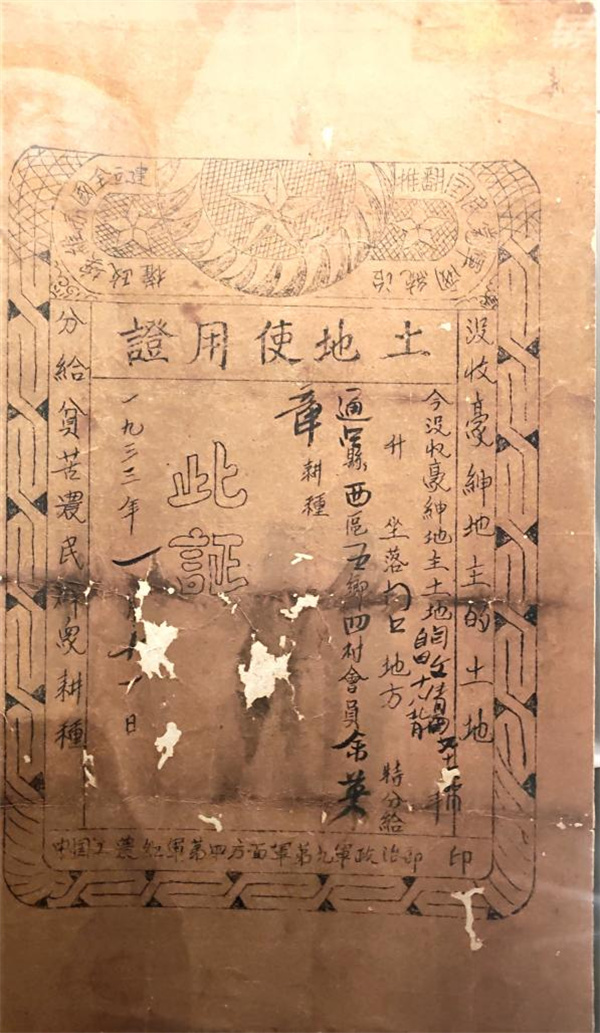 推翻國民黨軍閥統治
建立全國蘇維埃政權
土地使用證
没收豪紳地主的土地
今没收豪紳地主土地
升 坐落 口地方 特分給
通 縣西區五鄉四村會員余葉
章耕種
此証
一九三三年一 十 日
分給貧苦農民 耕種
中国工農紅軍第四方面軍第九軍政治部 印